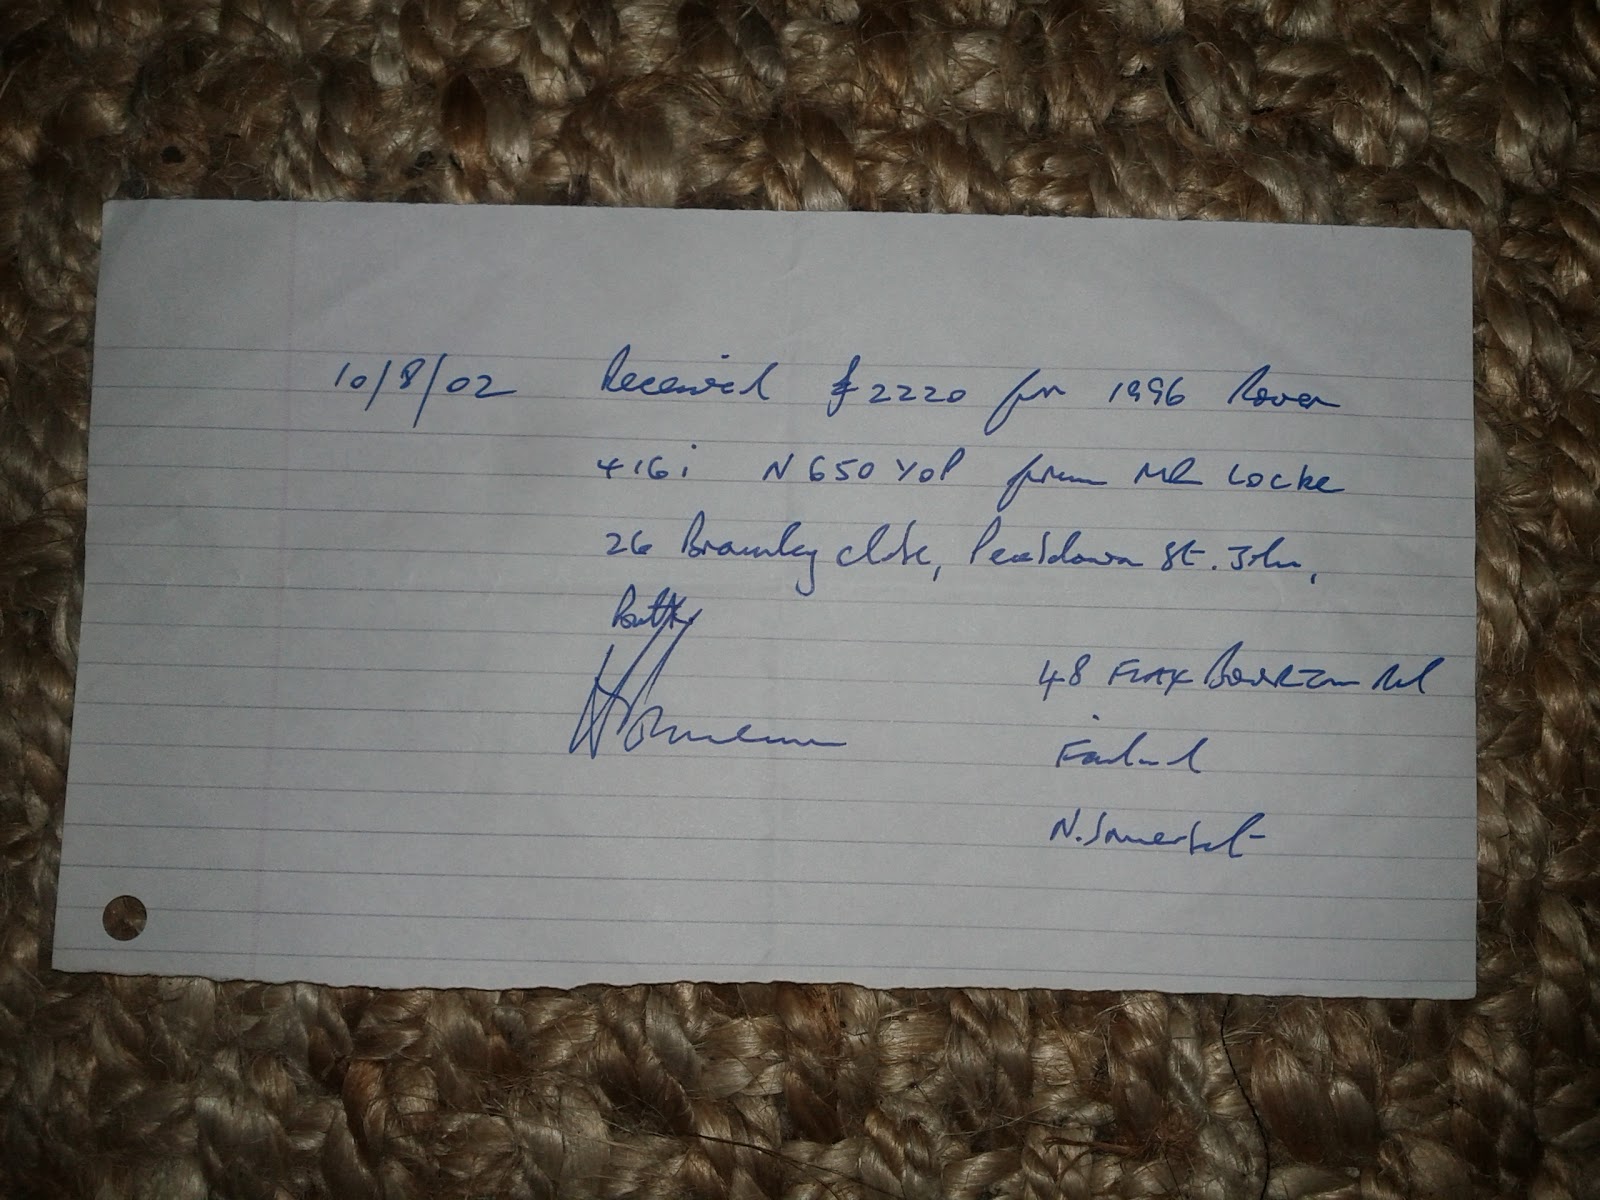 10/8/02 Received £2220 for 1996 Rover
416i N650 YOP from MR Locke
26 Bramley Close, Peasdown St. John,
Bath
48 Flax Bourton Rd
Failand
N. Somerset